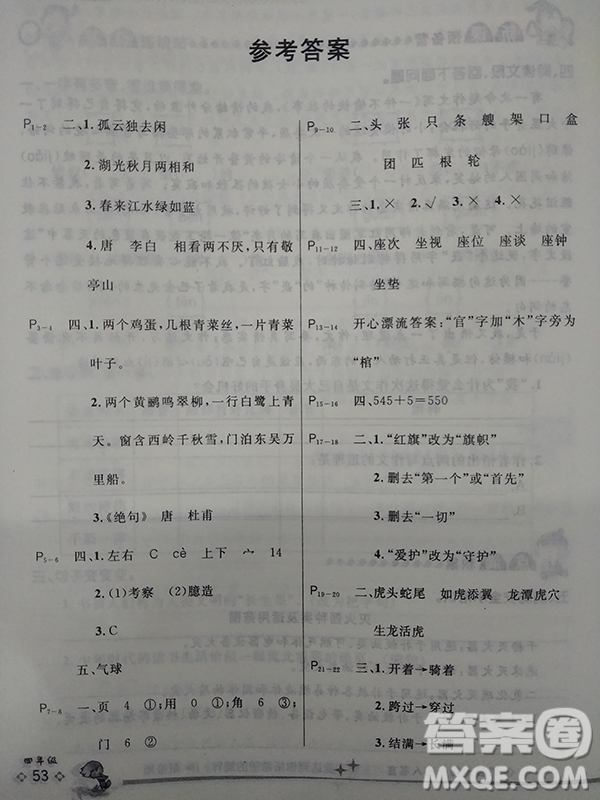 参考答案
P1-2 二、1. 孤云独去闲
2. 湖光秋月两相和
3. 春来江水绿如蓝
4. 唐 李白 相看两不厌，只有敬
亭山
P3-4 四、1. 两个鸡蛋，几根青菜丝，一片青菜
叶子。
2. 两个黄鹂鸣翠柳，一行白鹭上青
天。窗含西岭千秋雪，门泊东吴万
里船。
3.《绝句》 唐 杜甫
P5-6 四、1. 左右 C cè 上下 亠 14
2. (1)考察 (2)臆造
3. C
五、气球
P7-8 一、页 4 ①；用 0 ①；角 6 ③；
门 6 ②
P9-10 二、头 张 只 条 艘 架 口 盒
团 匹 根 轮
三、1. × 2. √ 3. × 4. ×
P11-12 四、座次 坐视 座位 座谈 座钟
坐垫
P13-14 开心漂流答案：“官”字加“木”字旁为
“棺”
P15-16 四、545+5=550
P17-18 二、1.“红旗”改为“旗帜”
2. 删去“第一个”或“首先”
3. 删去“一切”
4.“爱护”改为“守护”
P19-20 二、虎头蛇尾 如虎添翼 龙潭虎穴
生龙活虎
P21-22 三、1. 开着→骑着
2. 跨过→穿过
3. 结满→长满
四年级
53
答案圈
MXQE.COM